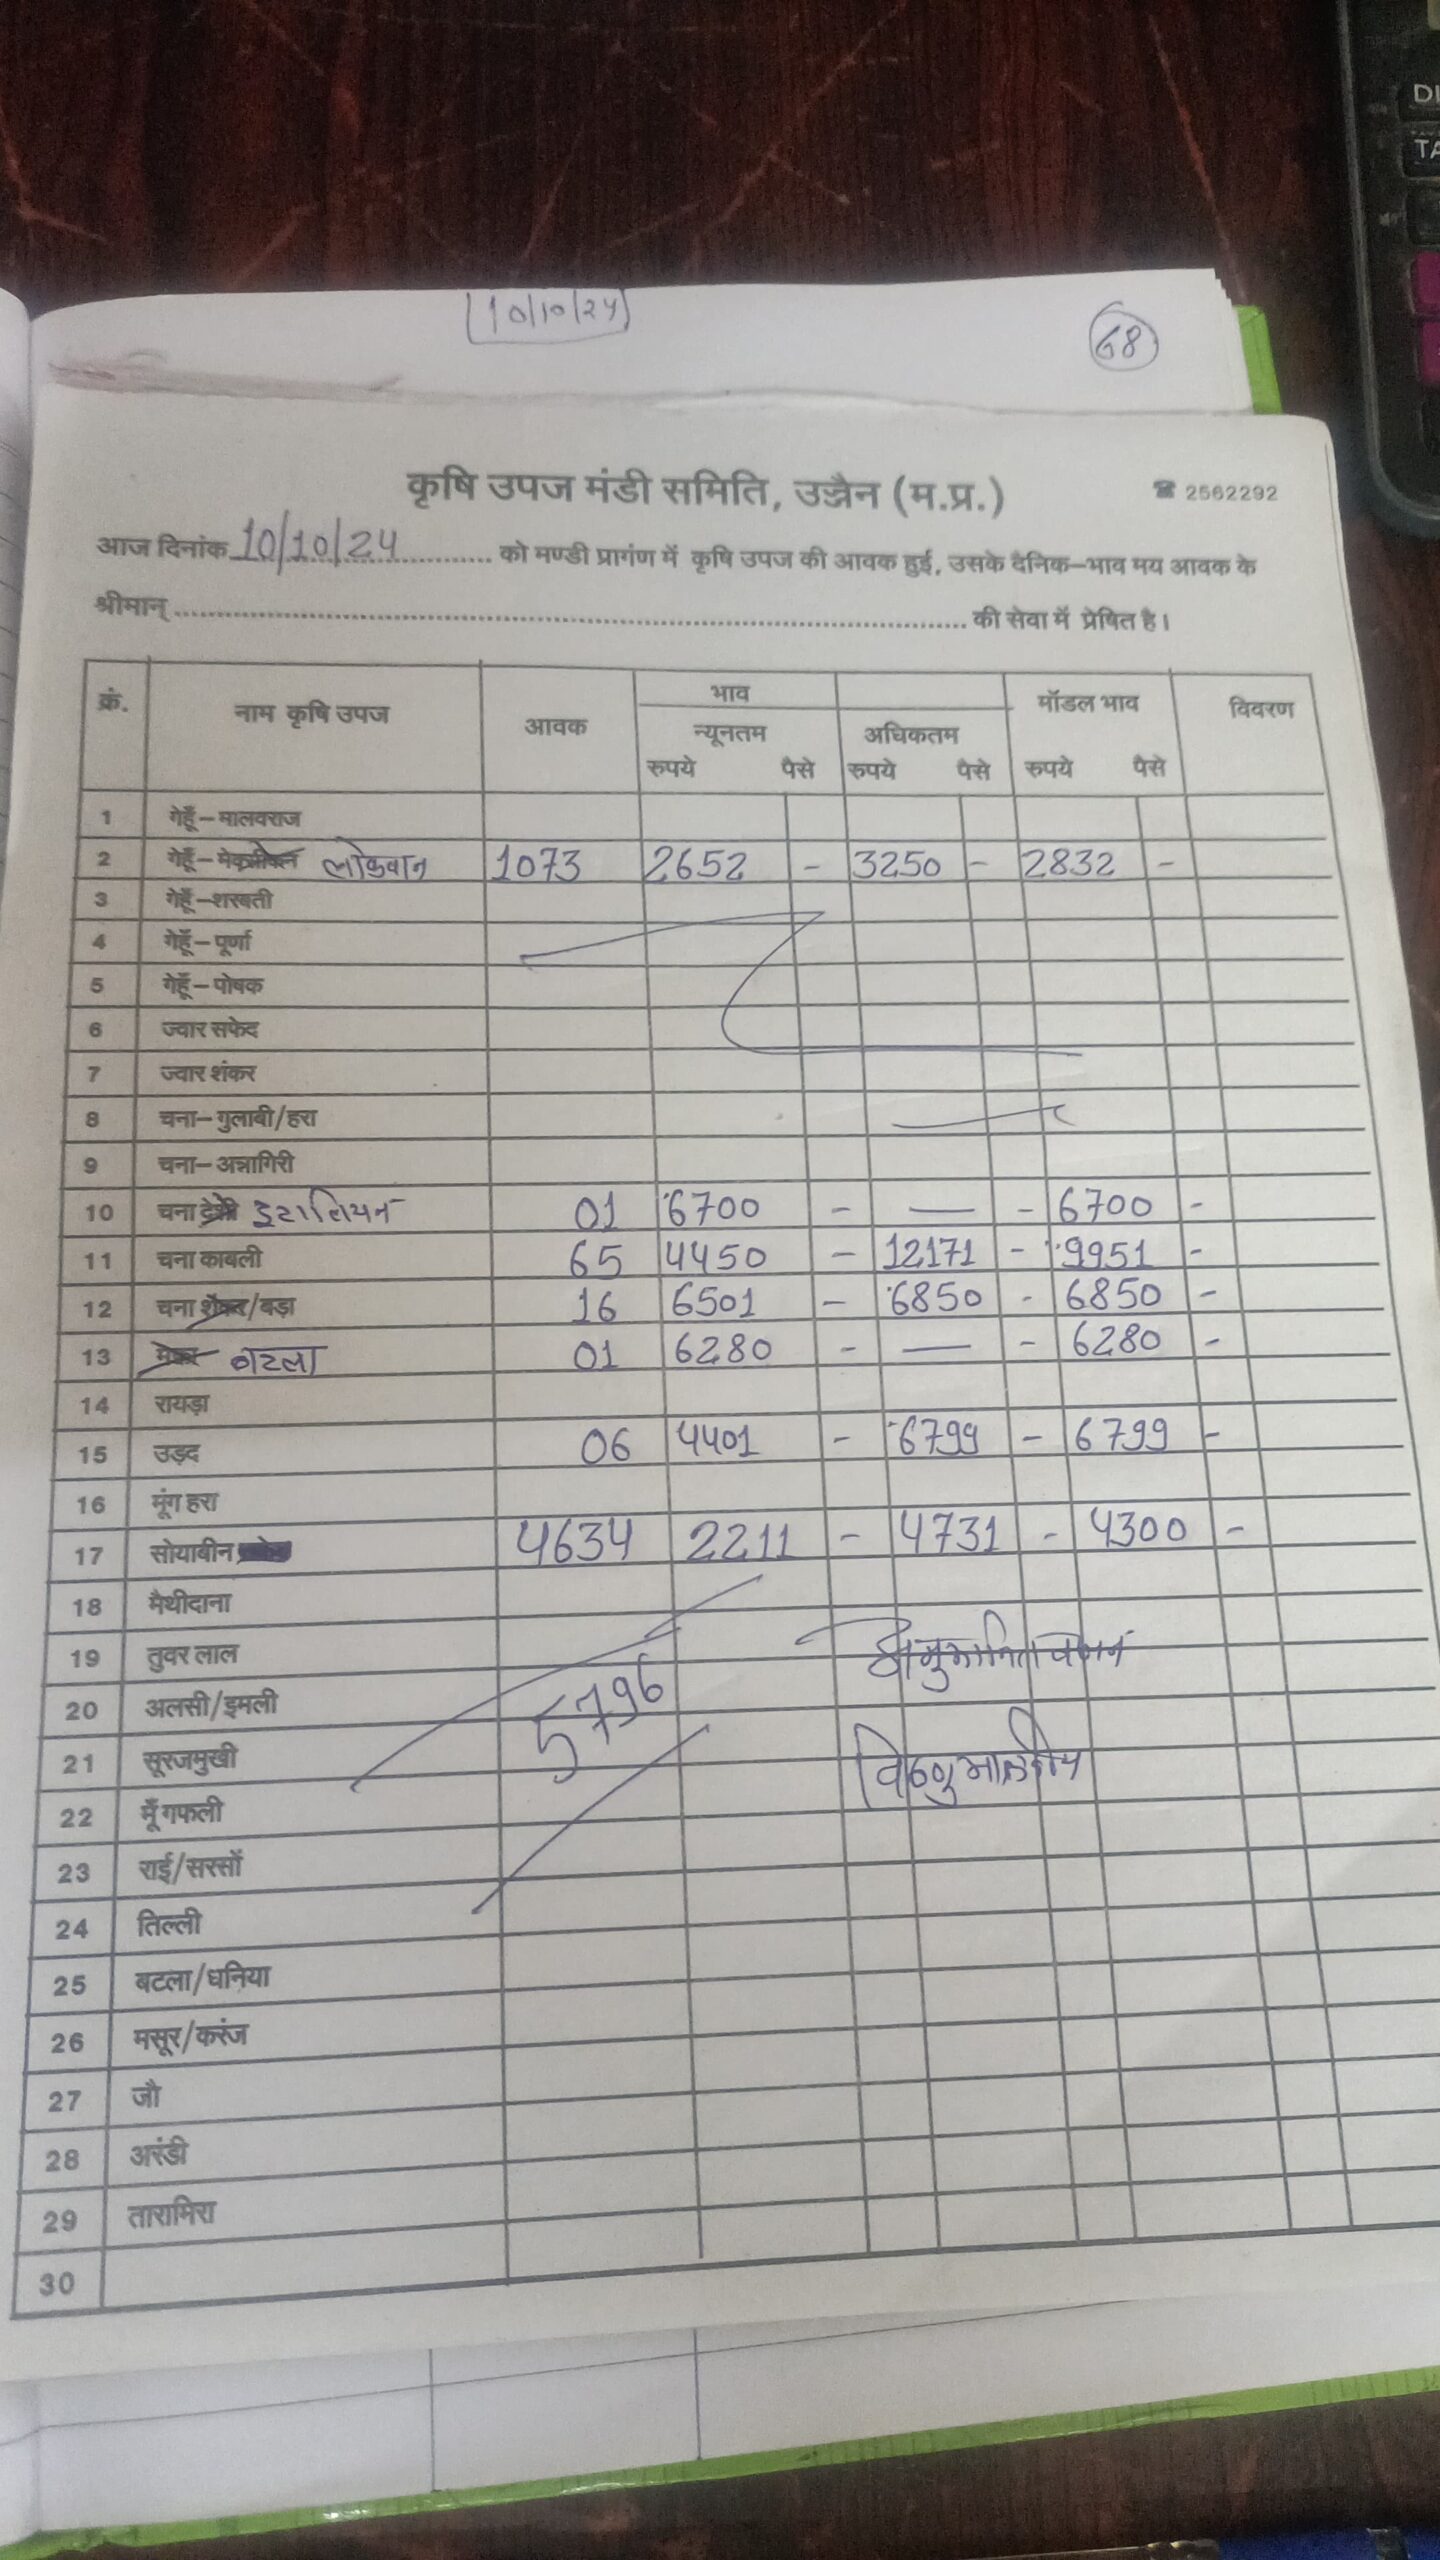 10/10/24
68
कृषि उपज मंडी समिति, उज्जैन (म.प्र.) ☎ 2562292
आज दिनांक 10/10/24 को मण्डी प्रागंण में कृषि उपज की आवक हुई, उसके दैनिक–भाव मय आवक के
श्रीमान् की सेवा में प्रेषित है।
क्रं. नाम कृषि उपज आवक भाव न्यूनतम अधिकतम मॉडल भाव विवरण
रुपये पैसे रुपये पैसे रुपये पैसे
1 गेहूँ–मालवराज
2 गेहूँ– लोकवान 1073 2652 - 3250 - 2832 -
3 गेहूँ–शरबती
4 गेहूँ–पूर्णा
5 गेहूँ–पोषक
6 ज्वार सफेद
7 ज्वार शंकर
8 चना–गुलाबी/हरा
9 चना–अन्नागिरी
10 चना देशी इटालियन 01 6700 - — - 6700 -
11 चना काबली 65 4450 - 12171 - 9951 -
12 चना शंकर/बड़ा 16 6501 - 6850 - 6850 -
13 मक्का बटला 01 6280 - — - 6280 -
14 रायड़ा
15 उड़द 06 4401 - 6799 - 6799 -
16 मूंग हरा
17 सोयाबीन 4634 2211 - 4731 - 4300 -
18 मैथीदाना
19 तुवर लाल
20 अलसी/इमली 5796
21 सूरजमुखी
22 मूँगफली
23 राई/सरसों
24 तिल्ली
25 बटला/धनिया
26 मसूर/करंज
27 जौ
28 अरंडी
29 तारामिरा
30
DI
TA